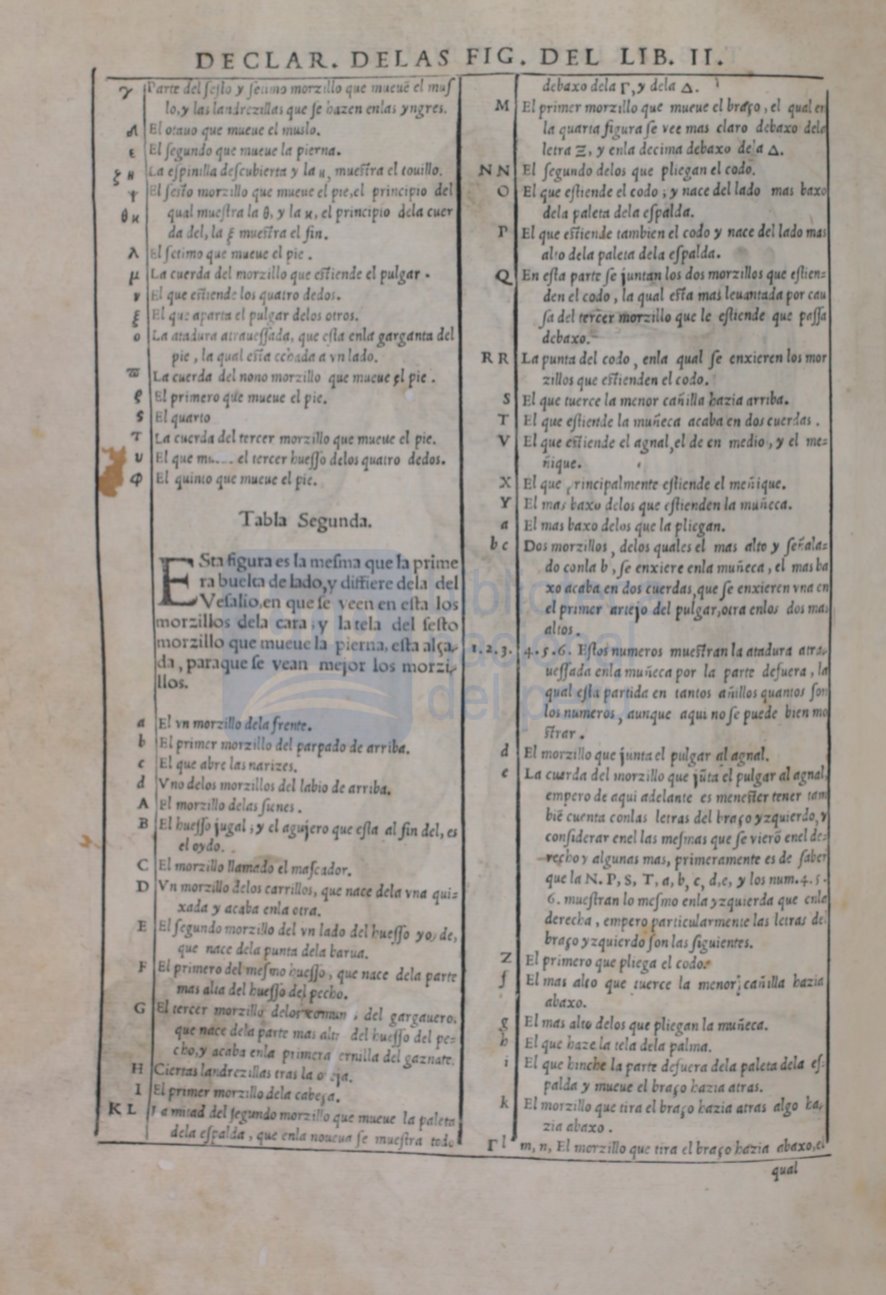 DECLAR. DELAS FIG. DEL LIB. II.
γ Parte del ſeſto y ſetimo morzillo que mueuē el muſ
lo, y las landrezillas que ſe hazen enlas yngres.
El otauo que mueue el muslo.
ε El ſegundo que mueue la pierna.
ξ η La eſpinilla deſcubierta y la η, mueſtra el touillo.
El ſeſto morzillo que mueue el pie, el principio del
θ κ qual mueſtra la θ, y la κ, el principio dela cuer
da del, la ξ mueſtra el fin.
λ El ſetimo que mueue el pie.
μ La cuerda del morzillo que eſtiende el pulgar.
ν El que eſtiende los quatro dedos.
ξ El que aparta el pulgar delos otros.
ο La atadura atraueſſada, que eſta enla garganta del
pie, la qual eſta echada a vn lado.
ϖ La cuerda del nono morzillo que mueue el pie.
ρ El primero que mueue el pie.
ς El quarto
τ La cuerda del tercer morzillo que mueue el pie.
υ El que mu.... el tercer hueſſo delos quatro dedos.
φ El quinto que mueue el pie.
Tabla Segunda.
ESta figura es la meſma que la prime
ra buelta de lado, y differe dela del
Veſalio, en que ſe veen en eſta los
morzillos dela cara, y la tela del ſeſto
morzillo que mueue la pierna, eſta alça-
da, paraque ſe vean mejor los morzi-
llos.
a El vn morzillo dela frente.
b El primer morzillo del parpado de arriba.
c El que abre las narizes.
d Vno delos morzillos del labio de arriba.
A El morzillo delas ſienes.
B El hueſſo jugal, y el agujero que eſta al fin del, es
el oydo.
C El morzillo llamado el maſcador.
D Vn morzillo delos carrillos, que nace dela vna qui-
xada y acaba enla otra.
E El ſegundo morzillo del vn lado del hueſſo yoyde,
que nace dela punta dela barua.
F El primero del meſmo hueſſo, que nace dela parte
mas alta del hueſſo del pecho.
G El tercer morzillo delos comun del gargauero,
que nace dela parte mas alta del hueſſo del pe-
cho, y acaba enla primera ernilla del gaznate.
H Ciertas landrezillas tras la oreja.
I El primer morzillo dela cabeça.
K L La mitad del ſegundo morzillo que mueue la paleta
dela eſpalda, que enla nouena ſe mueſtra todo
debaxo dela Γ, y dela Δ.
M El primer morzillo que mueue el braço, el qual en
la quarta figura ſe vee mas claro debaxo dela
letra Ξ, y enla decima debaxo dela Δ.
N N El ſegundo delos que pliegan el codo.
O El que eſtiende el codo, y nace del lado mas baxo
dela paleta dela eſpalda.
P El que eſtiende tambien el codo y nace del lado mas
alto dela paleta dela eſpalda.
Q En eſta parte ſe juntan los dos morzillos que eſtien-
den el codo, la qual eſta mas leuantada por cau
ſa del tercer morzillo que le eſtiende que paſſa
debaxo.
R R La punta del codo, enla qual ſe enxieren los mor
zillos que eſtienden el codo.
S El que tuerce la menor cañilla hazia arriba.
T El que eſtiende la muñeca acaba en dos cuerdas.
V El que eſtiende el agnal, el de en medio, y el me-
ñique.
X El que principalmente eſtiende el meñique.
Y El mas baxo delos que eſtienden la muñeca.
a El mas baxo delos que la pliegan.
b c Dos morzillos, delos quales el mas alto y ſeñala-
do conla b, ſe enxiere enla muñeca, el mas ba
xo acaba en dos cuerdas, que ſe enxieren vna en
el primer artejo del pulgar, otra enlos dos mas
altos.
1. 2. 3. 4. 5. 6. Eſtos numeros mueſtran la atadura atra-
ueſſada enla muñeca por la parte defuera, la
qual eſta partida en tantos añillos quantos ſon
los numeros, aunque aqui no ſe puede bien mo
ſtrar.
d El morzillo que junta el pulgar al agnal.
e La cuerda del morzillo que jūta el pulgar al agnal,
empero de aqui adelante es meneſter tener tam
biē cuenta conlas letras del braço yzquierdo, y
conſiderar enel las meſmas que ſe vierō enel de-
recho y algunas mas, primeramente es de ſaber
que la N. P, S, T, a, b, c, d, e, y los num. 4. 5.
6. mueſtran lo meſmo enla yzquierda que enla
derecha, empero particularmente las letras del
braço yzquierdo ſon las ſiguientes.
Z El primero que pliega el codo.
f El mas alto que tuerce la menor cañilla hazia
abaxo.
g El mas alto delos que pliegan la muñeca.
h El que haze la tela dela palma.
i El que hinche la parte defuera dela paleta dela eſ-
palda y mueue el braço hazia atras.
k El morzillo que tira el braço hazia atras algo ha-
zia abaxo.
Γ l m, n, El morzillo que tira el braço hazia abaxo, el
qual
biblioteca
nacional
del perú